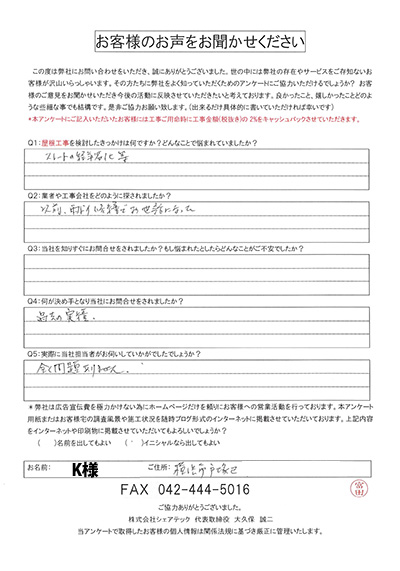 お客様のお声をお聞かせください
この度は弊社にお問い合わせをいただき、誠にありがとうございました。世の中には弊社の存在やサービスをご存知ないお
客様が沢山いらっしゃいます。その方たちに弊社をよく知っていくためのアンケートにご協力いただけるでしょうか? お客
様のご意見をお聞かせいただき今後の活動に反映させていただきたいと考えております。良かったこと、嬉しかったことどのよ
うな些細な事でも結構です。是非ご協力お願い致します。(出来るだけ具体的に書いていただければ幸いです)
*本アンケートにご記入いただいたお客様には工事ご用命時に工事金額(税抜き)の2%をキャッシュバックさせていただきます。
Q1:屋根工事を検討したきっかけは何ですか?どんなことで悩まれていましたか?
スレートの経年劣化 等
Q2:業者や工事会社をどのように探されましたか?
以前、お世話になった
Q3:当社を知りすぐにお問合せをされましたか?もし悩まれたとしたらどんなことがご不安でしたか?
Q4:何が決め手となり当社にお問合せをされましたか?
過去の実績。
Q5:実際に当社担当者がお伺いしていかがでしたでしょうか?
全く問題ありません。
*弊社は広告宣伝費を極力かけない為にホームページだけを頼りにお客様への営業活動を行っております。本アンケート
用紙またはお客様宅の調査風景や施工状況を随時ブログ形式のインターネットに掲載させていただいております。上記内容
をインターネットや印刷物に掲載させていただいてもよろしいでしょうか?
( )名前を出してもよい ( )イニシャルなら出してもよい
お名前: K様 ご住所: 横浜市戸塚区
FAX 042-444-5016
ご協力ありがとうございました。
株式会社シェアテック 代表取締役 大久保 誠二
当アンケートで取得したお客様の個人情報は関係法規に基づき厳正に管理いたします。